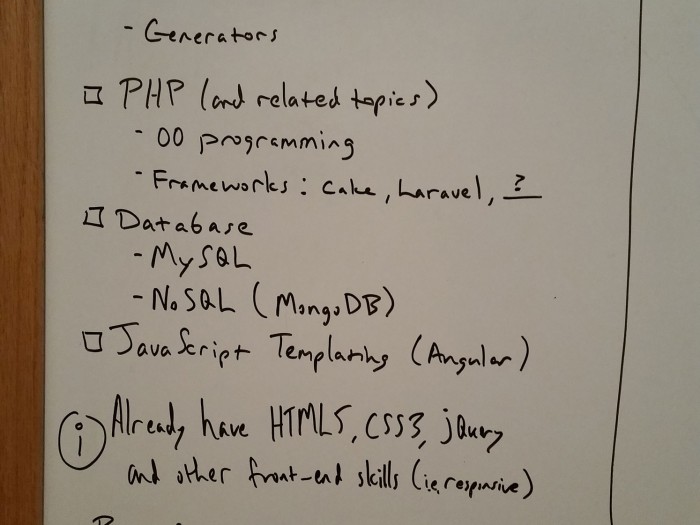 - Generators
PHP (and related topics)
- OO programming
- Frameworks: Cake, Laravel, ?
Database
- MySQL
- NoSQL (MongoDB)
JavaScript Templating (Angular)
i Already have HTML5, CSS3, jQuery
and other front-end skills (ie, responsive)